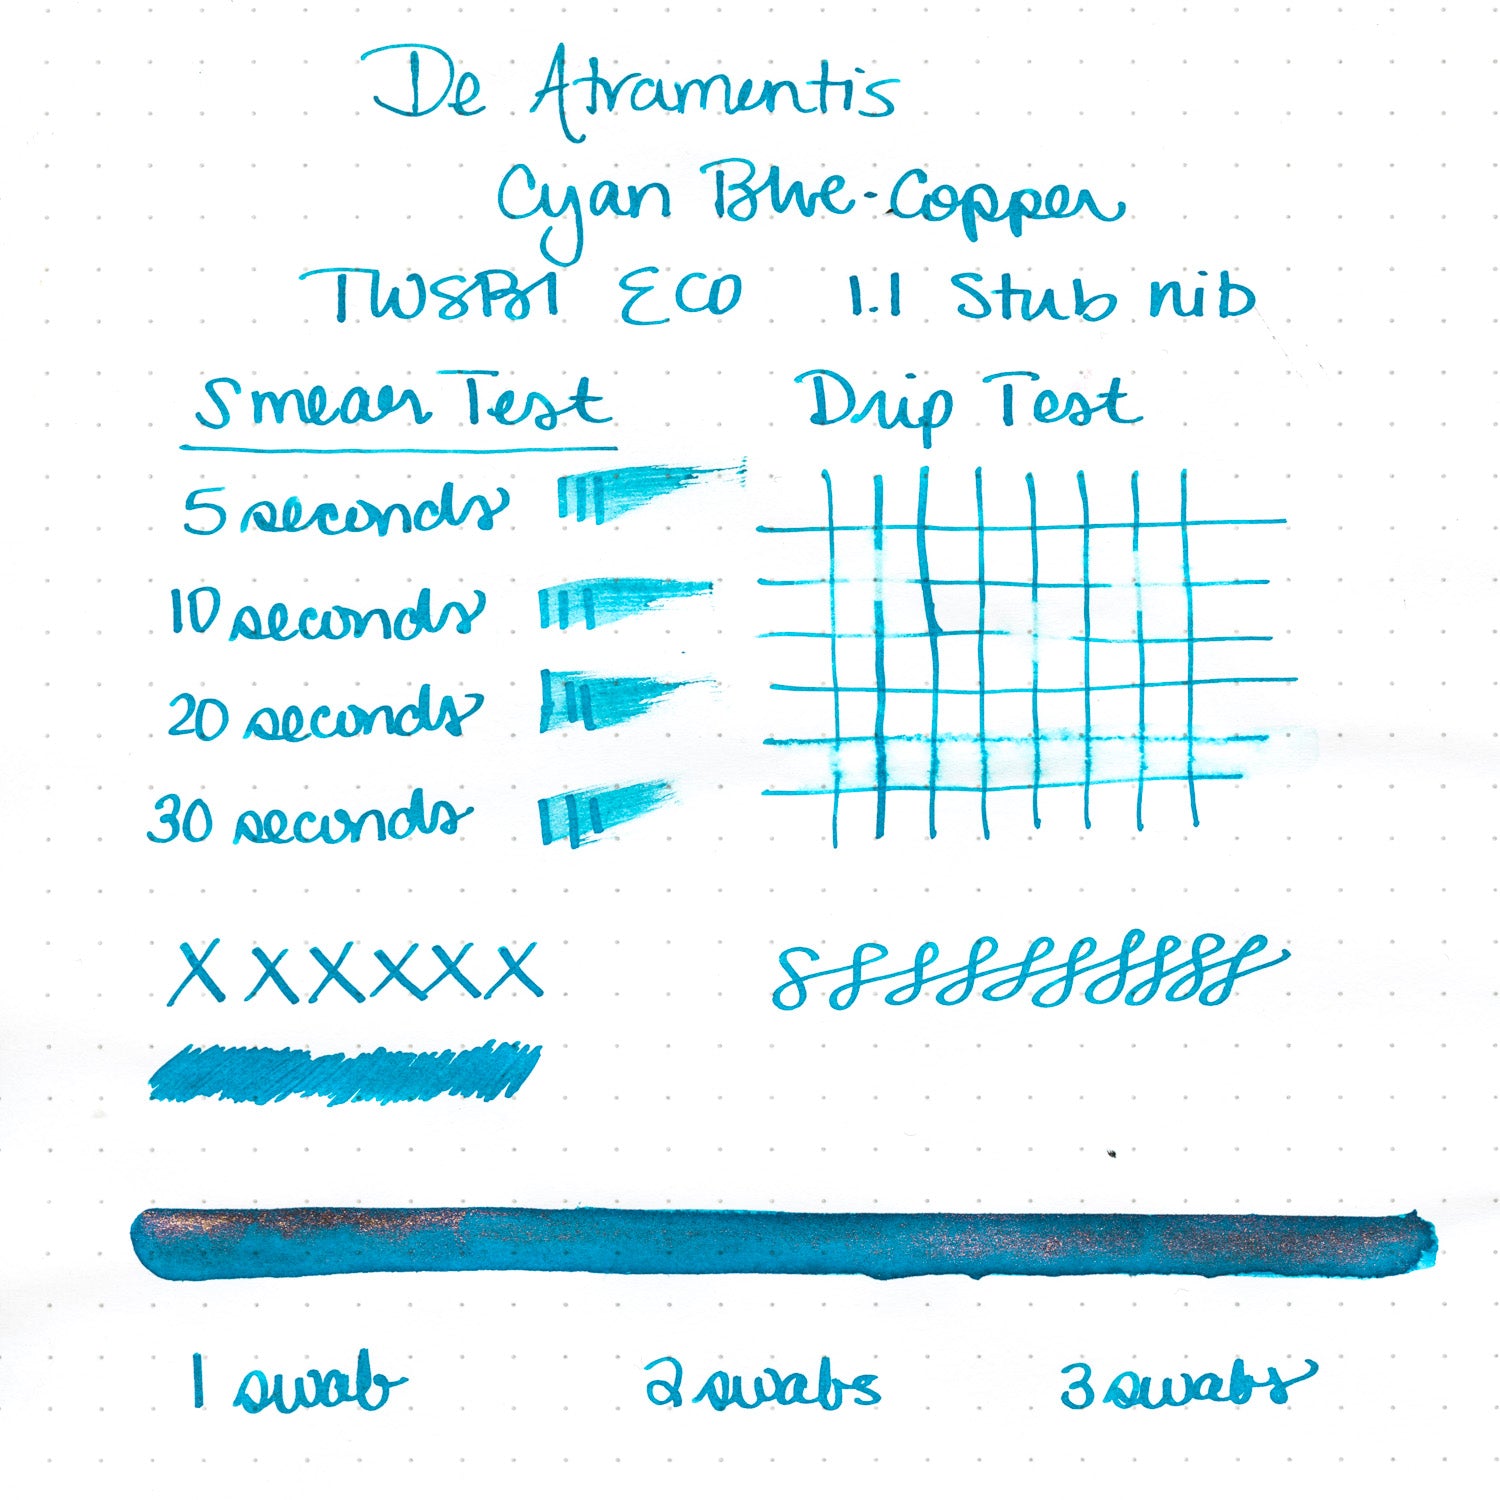 De Atramentis
Cyan Blue-Copper
TWSBI ECO 1.1 Stub nib
Smear Test
Drip Test
5 seconds
10 seconds
20 seconds
30 seconds
X X X X X X
1 swab
2 swabs
3 swabs